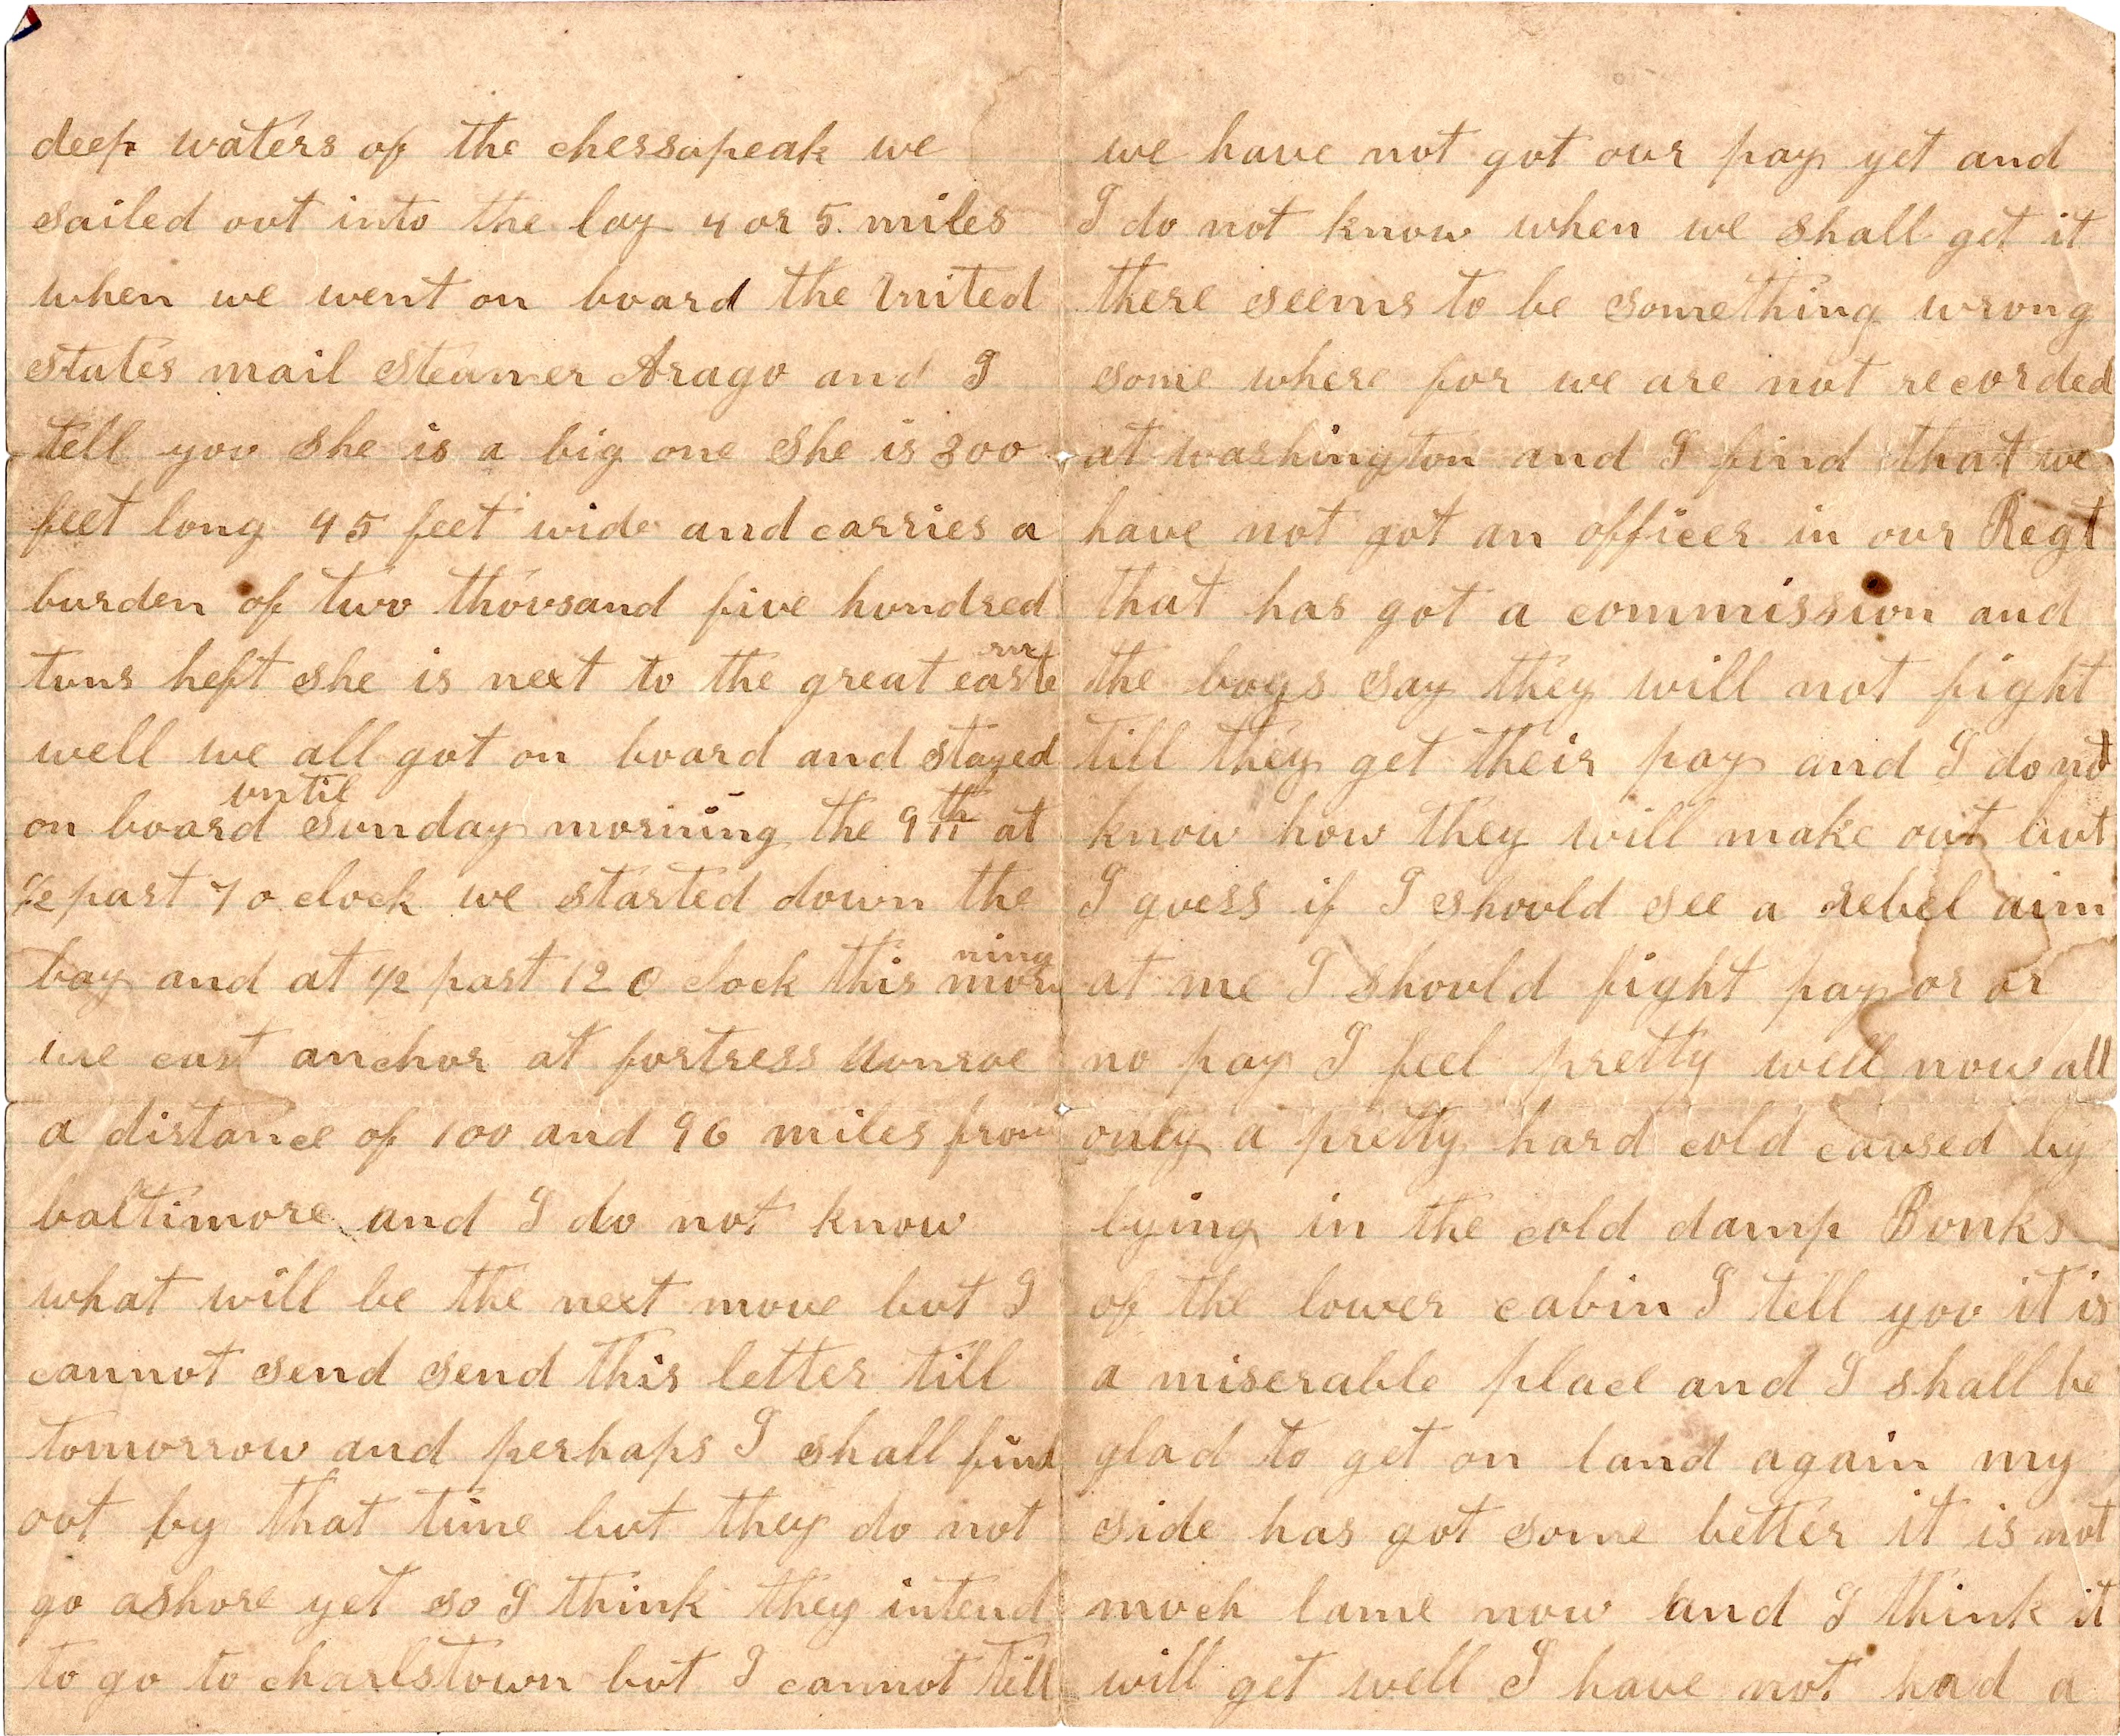 deep waters of the chessapeak we
sailed out into the bay 4 or 5. miles
when we went on board the United
states mail steamer Arago and I
tell you she is a big one she is 300
feet long 45 feet wide and carries a
burden of two thousand five hundred
tuns heft she is next to the great eastern
well we all got on board and stayed
on board until sunday morning the 9th at
½ past 7 o clock we started down the
bay and at ½ past 12 O clock this morning
we cast anchor at fortress Monroe
a distance of 100 and 96 miles from
baltimore and I do not know
what will be the next move but I
cannot send send this letter till
tomorrow and perhaps I shall find
out by that time but they do not
go ashore yet so I think they intend
to go to charlstown but I cannot till
we have not got our pay yet and
I do not know when we shall get it
there seems to be something wrong
some where for we are not recorded
at washington and I find that we
have not got an officer in our Regt
that has got a commission and
the boys say they will not fight
till they get their pay and I do not
know how they will make out but
I guess if I should see a rebel aim
at me I should fight pay or or
no pay I feel pretty well now all
only a pretty hard cold caused by
lying in the cold damp Bunks
of the lower cabin I tell you it is
a miserable place and I shall be
glad to get on land again my
side has got some better it is not
much lame now and I think it
will get well I have not had a